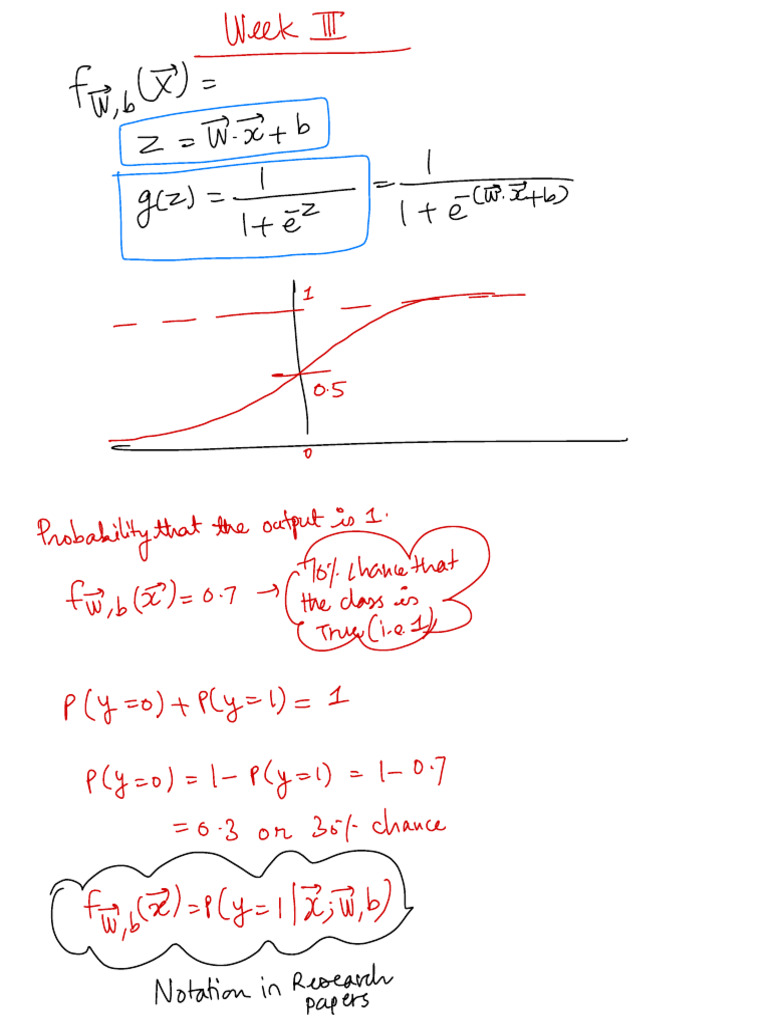 Week III
f_{\vec{w},b}(\vec{x}) =
z = \vec{w}·\vec{x} + b
g(z) = \frac{1}{1+e^{-z}} = \frac{1}{1+e^{-(\vec{w}·\vec{x}+b)}}
1
0.5
0
Probability that the output is 1.
f_{\vec{w},b}(\vec{x}) = 0.7 → 70% chance that
the class is
True (i.e. 1)
P(y=0) + P(y=1) = 1
P(y=0) = 1 - P(y=1) = 1 - 0.7
= 0.3 or 30% chance
f_{\vec{w},b}(\vec{x}) = P(y=1 | \vec{x}; \vec{w}, b)
Notation in Research
papers